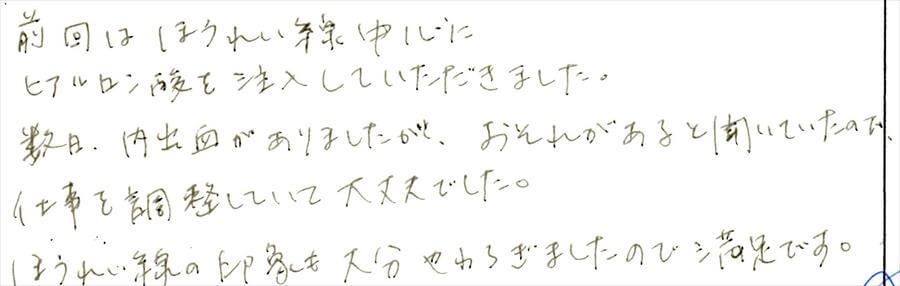 前回はほうれい線中心に
ヒアルロン酸を注入していただきました。
数日、内出血がありましたが、おそれがあると聞いていたので、
仕事を調整していて大丈夫でした。
ほうれい線の印象も大分やわらぎましたので満足です。